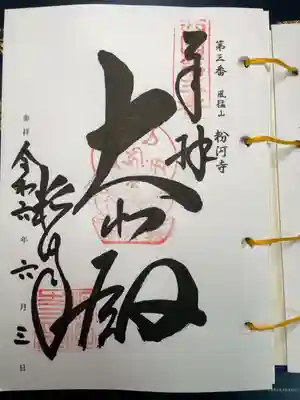 第三番 風猛山 粉河寺
奉拝
大悲殿
粉河寺
令和六年六月三日